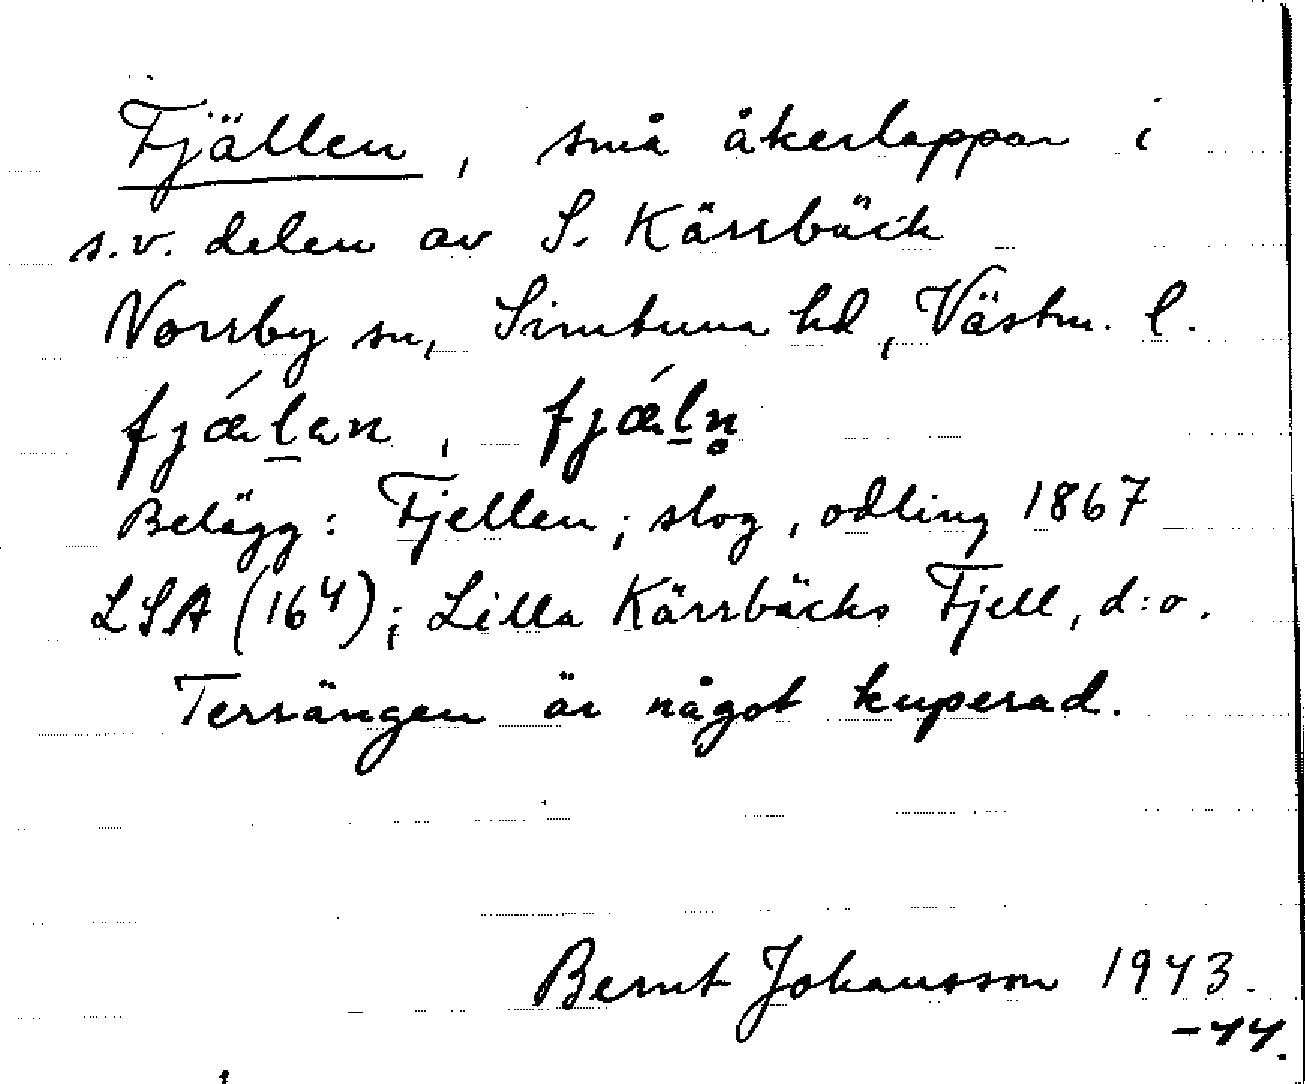 Fjällen, små åkerlappar i
s.v. delen av S. Kärrbäck
Norrby sn, Simtuna hd, Västm. l.
fjǽl̲en, fjǽl̲n̥
Belägg: Fjellen; slog, odling 1867
LSA (16⁴); Lilla Kärrbäcks Fjell, d:o.
Terrängen är något kuperad.
Bernt Johansson 1943.
-44.